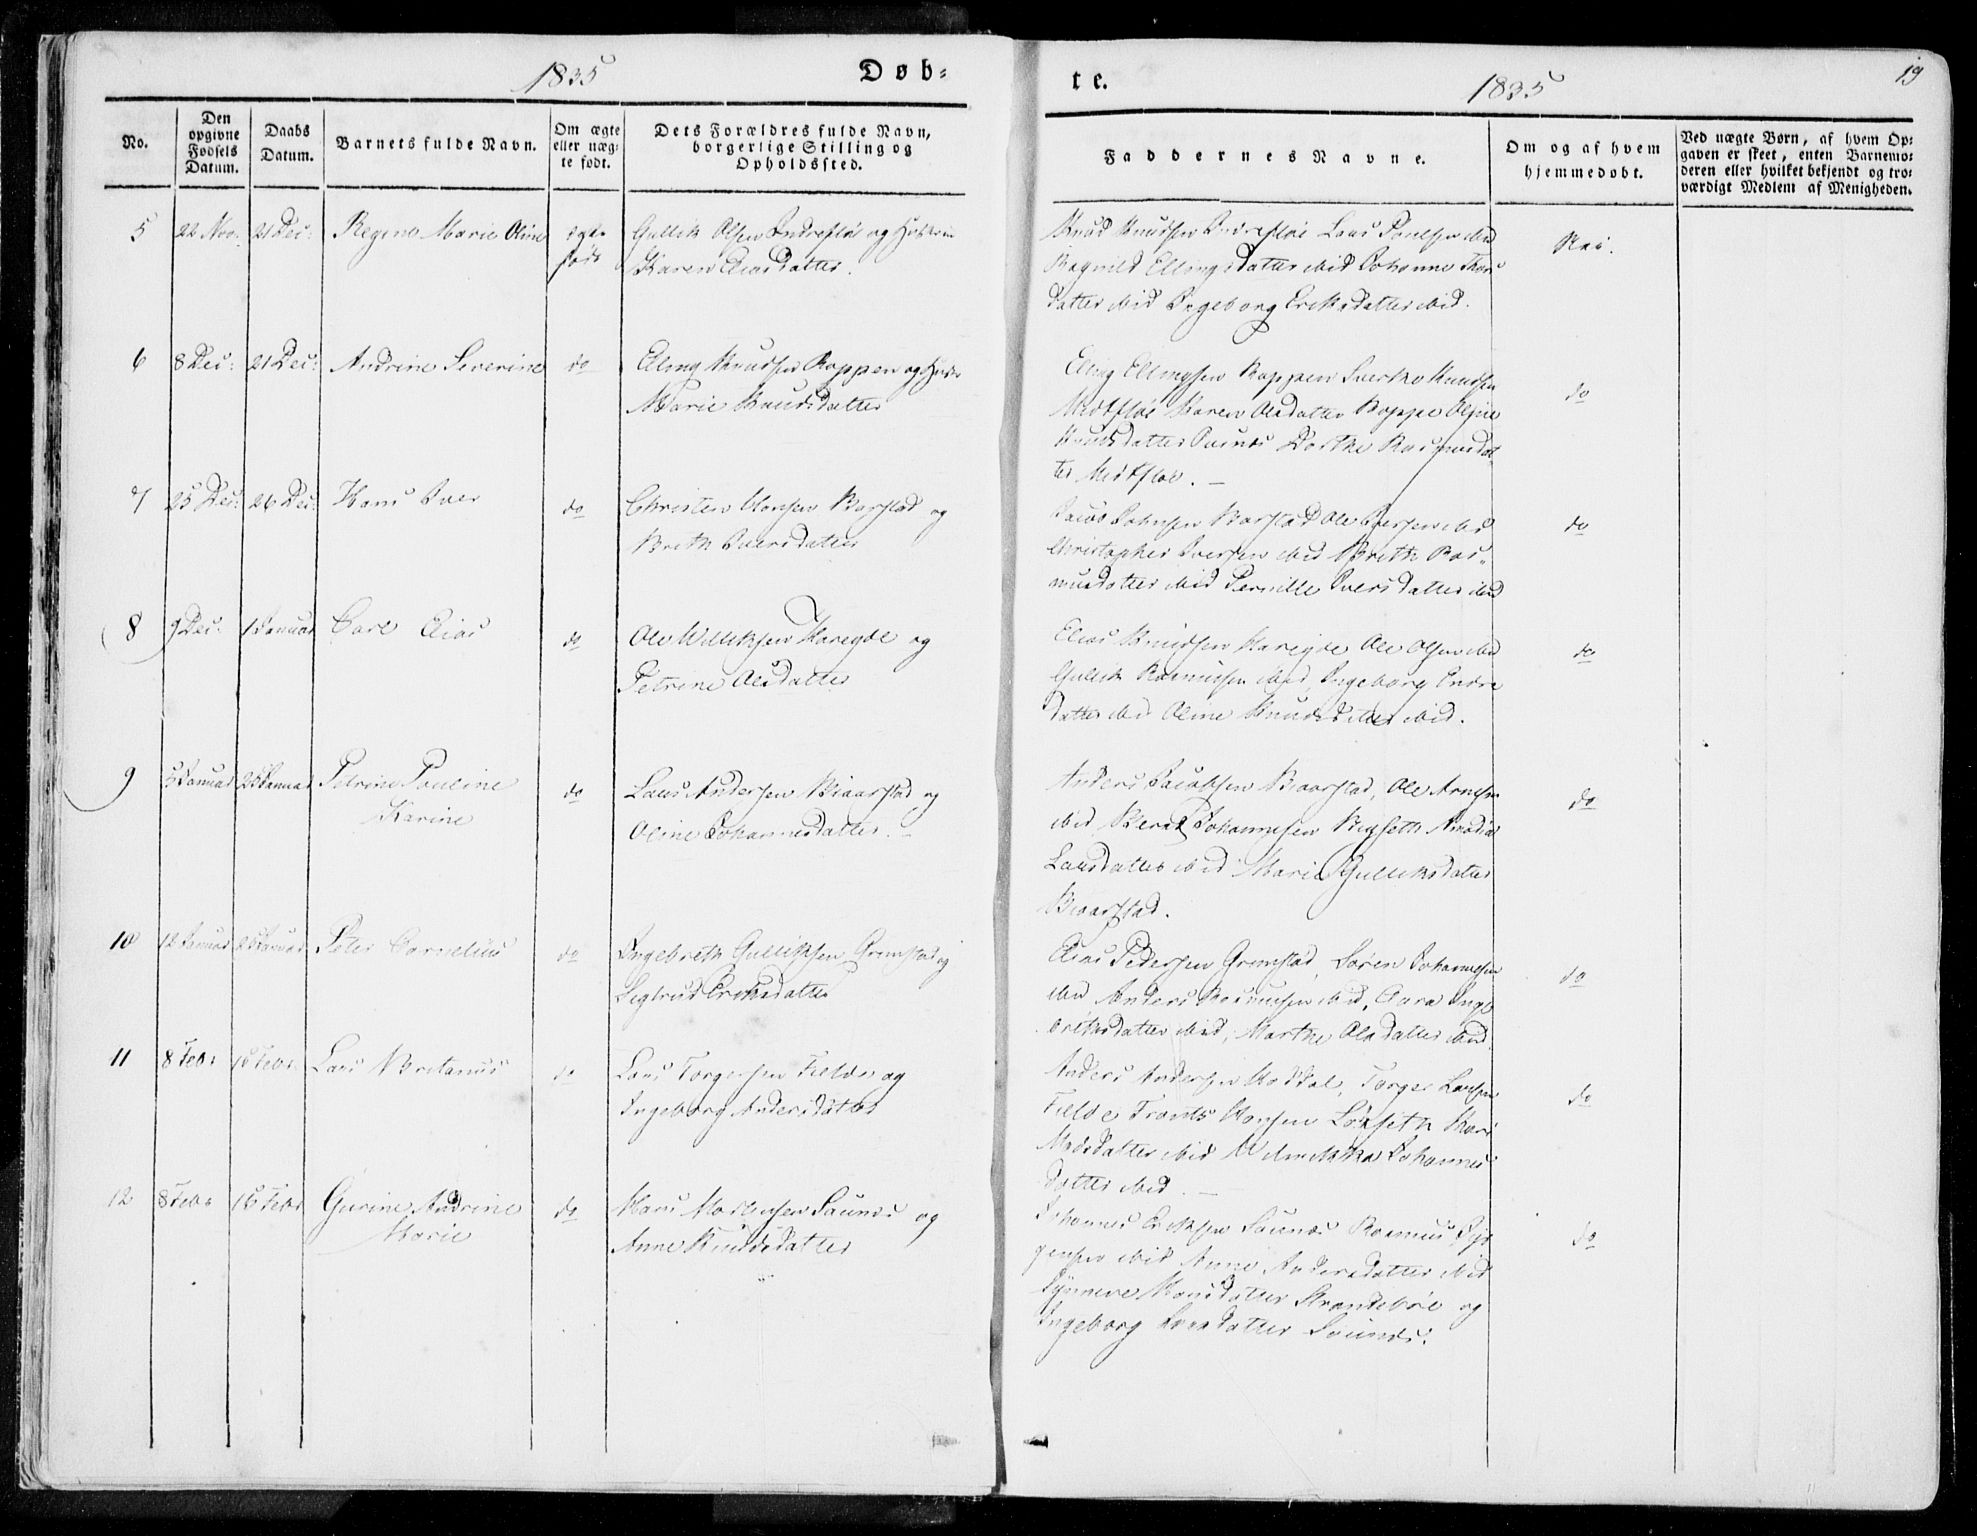 1835
Døb-
te.
1835
19
No.
Den opgivne Fødsels Datum.
Daabs Datum.
Barnets fulde Navn.
Om ægte eller uægte født.
Dets Forældres fulde Navn, borgerlige Stilling og Opholdssted.
Faddernes Navne.
Om og af hvem hjemmedøbt.
Ved uægte Børn, af hvem Opgaven er skeet, enten Barnemoderen eller hvilket bekjendt og troværdigt Medlem af Menigheden.
5 22 Nov: 21 Dec: Regine Marie Oline ægte
født
Gullik Olsen Indrefløe og Hustrue
Karen Eliasdatter.
Knud Knudsen Indrefløe Lars Poulsen ibid
Ragnild Ellingsdatter ibid Johanne
datter ibid Ingeborg Eriksdatter ibid.
Nei.
6 8 Dec: 21 Dec: Andrine Severine do
Elling Knudsen Roppen og Hustr
Marie Knudsdatter
Elling Ellingsen Roppen Sverke Knudsen
Midtfløe Karen Olsdatter Roppe
Knudsdatter Dorthe Rasmusdat
ter Midtfløe.
do
7 25 Dec: 26 Dec: Hans Iver do
Christen Hansen Barstad og
Brith Iversdatter
Jacob Johnsen Barstad Ole Iversen ibid
Christopher Iversen ibid Brith Ras-
musdatter ibid Pernille Iversdatter ibid
do
8 9 Dec. 1 Januar Carl Elias do
Ole Villiksen Hareyde og
Petrine Olsdatter
Elias Knudsen Hareyde Ole Olsen ibid
Gullik Rasmussen ibid, Ingeborg Endre
datter ibid Oline Knudsdatter ibid.
do
9 Januar 25 Januar Petrine Pauline
Karine
do
Lars Andersen Biaarstad og
Oline Johannesdatter.
Anders Jacobsen Biaarstad, Ole Arnesen
ibid Johannesen
Larsdatter ibid Marie Gulliksdatter
Biaarstad.
do
10 12 Januar 25 Januar Peter Cornelius do
Ingebreth Gulliksen Grimstad og
Sigtrud Eriksdatter
Elias Pedersen Grimstad, Søren Johannesen
ibid Anders Rasmussen ibid, Inge
brethsdatter ibid, Marthe Olsdatter ibid.
do
11 8 Febr 15 Febr. Lars Britanus do
Lars Torgersen Fielde og
Ingeborg Andersdatter
Anders Andersen Hoddal, Torger Larsen
Fielde Hansen Løseth Kari
Madsdatter ibid Johannes
datter ibid.
do
12 8 Febr 15 Febr Gurine Andrine
Marie
do
Hans Saunes og
Anne Knudsdatter
Johannes Eriksen Saunes Rasmus
ibid Anne Andersdatter ibid
Synneve Hansdatter Strandebøe og
Ingeborg Larsdatter Saunes.
do